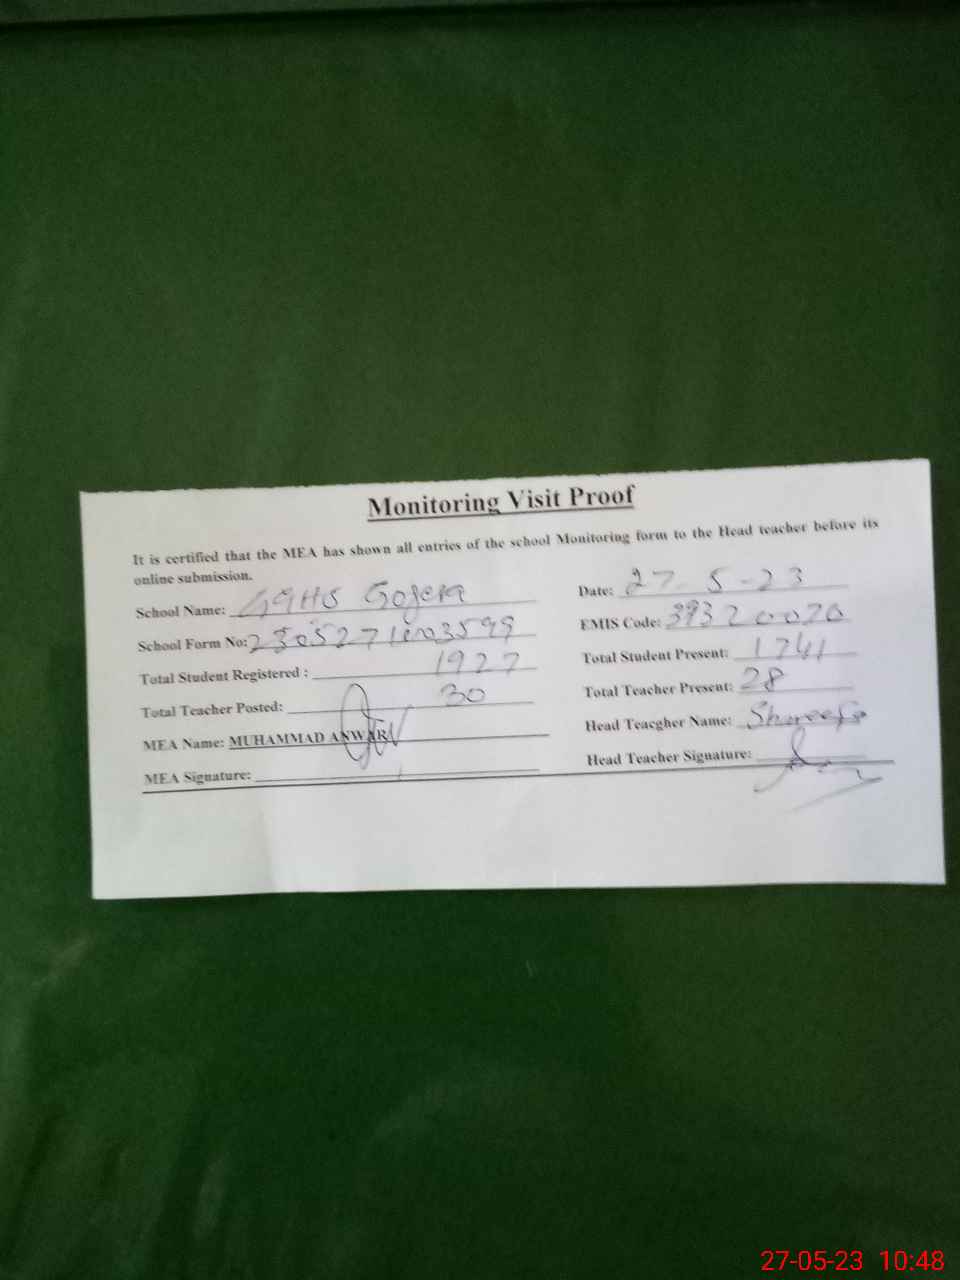 Monitoring Visit Proof
It is certified that the MEA has shown all entries of the school Monitoring form to the Head teacher before its
online submission.
School Name: GGHS Gojera
Date: 27-5-23
School Form No:
EMIS Code: 39320020
Total Student Registered : 1927
Total Student Present: 1741
Total Teacher Posted: 30
Total Teacher Present: 28
MEA Name: MUHAMMAD ANWAR
Head Teacgher Name:
MEA Signature:
Head Teacher Signature:
27-05-23 10:48